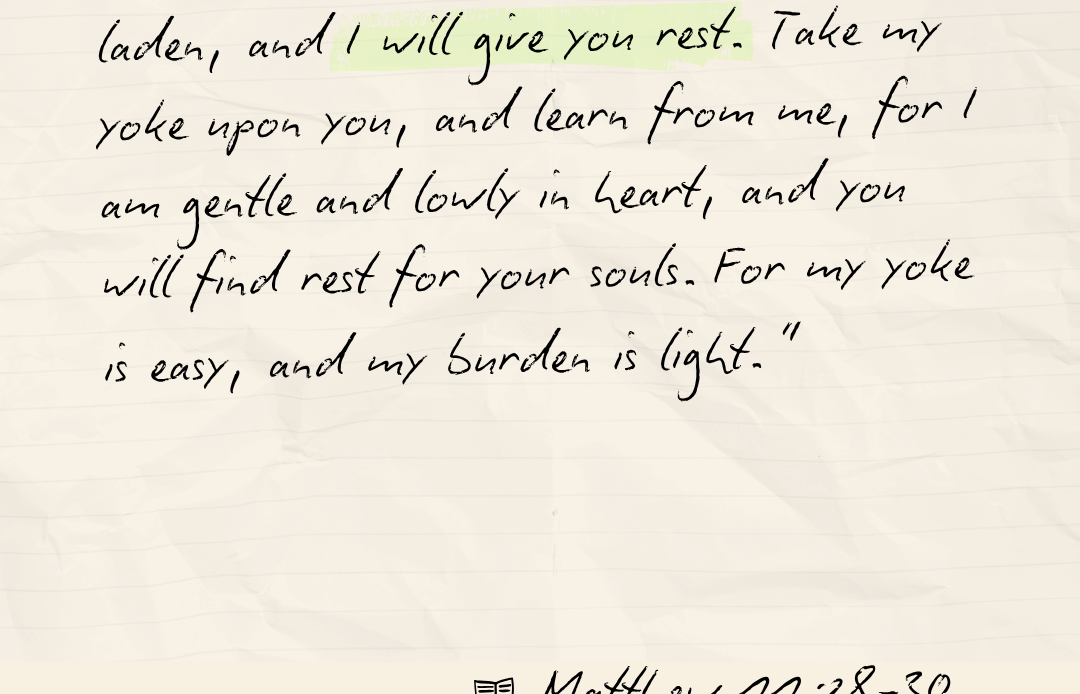 laden, and I will give you rest. Take my
yoke upon you, and learn from me, for I
am gentle and lowly in heart, and you
will find rest for your souls. For my yoke
is easy, and my burden is light."
Matthew 11:28-30